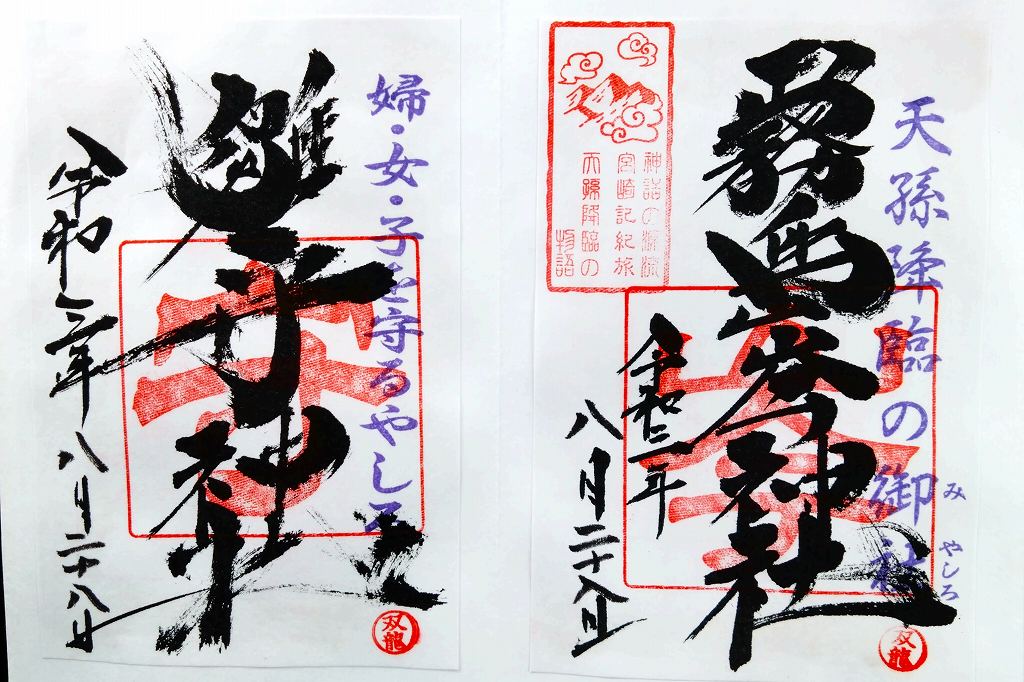 天孫降臨の御社
みやしろ
霧島岑神社
神話の源流
宮崎記紀旅
天孫降臨の
物語
令和二年
八月二十八日
双龍
婦・女・子を守るやしろ
雛守神社
令和二年八月二十八日
双龍